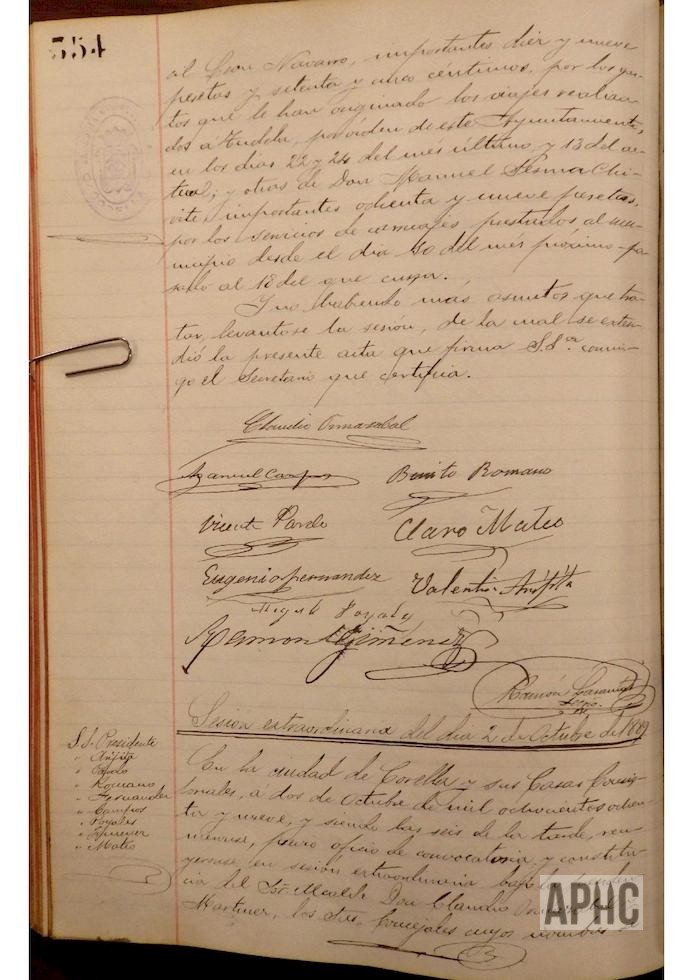 al Gran Navarro, importantes diez y nueve
pesetas y setenta y cinco céntimos, por los gas-
tos que le han originado los viajes realiza-
dos á Tudela, por órden de este Ayuntamiento,
en los dias 22 y 24 del mes último, y 13 del ac-
tual; y otras de Don Manuel Sesma Chi-
vite importantes ochenta y nueve pesetas,
por los servicios de carruajes prestados al mu-
nicipio desde el dia 30 del mes próximo-pa-
sado al 18 del que cursa.
Y no habiendo más asuntos que tra-
tar, levantose la sesión, de la cual se exten-
dió la presente acta que firma S.S. conmi-
go el Secretario que certifica.
Claudio
Manuel Campos
Benito Romano
Vicente Pardo
Claro Mateo
Eugenio Fernandez
Valentin Arifita
Miguel Poyales
Ramon Gimenez
Ramón
Srio.
Sesion extraordinaria del dia 2 de Octubre de 1889
S.S. Presidente
" Pardo
" Romano
" Fernandez
" Campos
" Poyales
" Mateo
En la ciudad de Corella y sus Casas Consis-
toriales, á dos de Octubre de mil ochocientos ochen-
ta y nueve, y siendo las seis de la tarde, reu-
niéronse, previo oficio de convocatoria y constitu-
yeronse, en sesión extraordinaria bajo la presiden-
cia del Sr. Alcalde Don Claudio
Martinez, los Sres. Concejales cuyos nombres
APHC